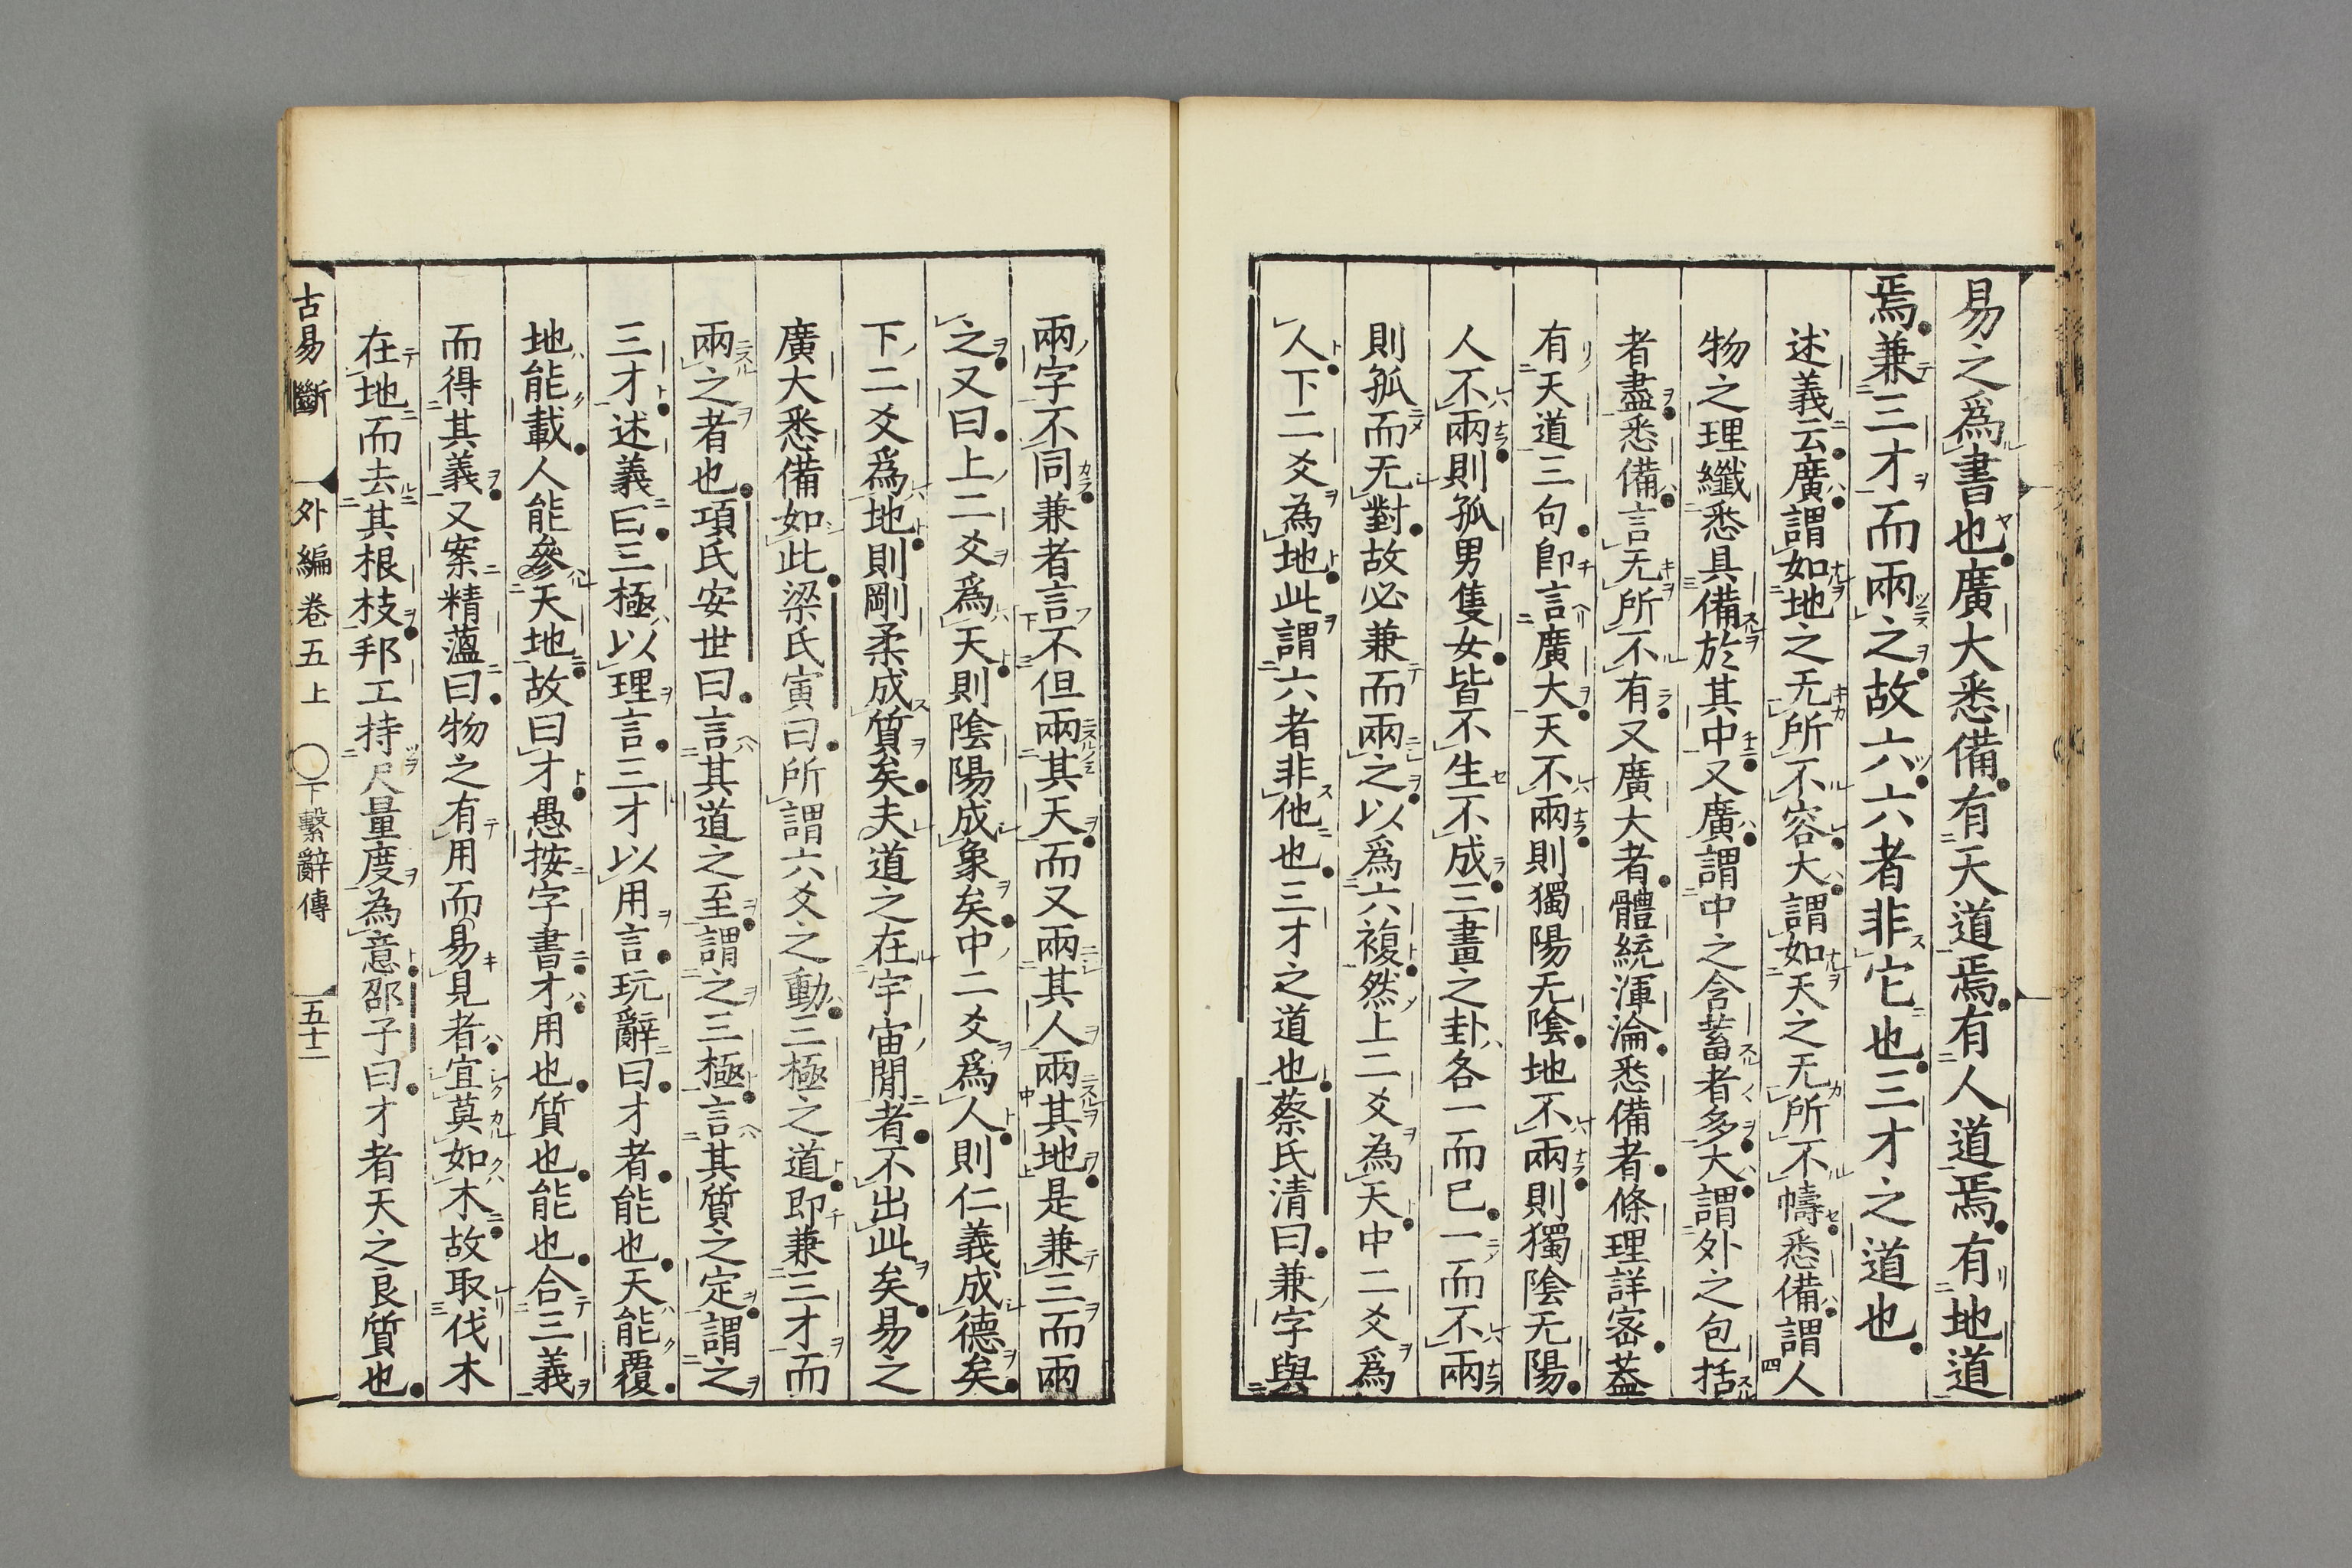 易之爲書也廣大悉備有天道焉有人道焉有地道
焉兼三才而兩之故六六者非它也三才之道也
述義云廣謂如地之无所不容大謂如天之无所不幬悉備謂人
物之理纖悉具備於其中又廣謂中之含蓄者多大謂外之包括
者盡悉備言无所不有又廣大者體統渾淪悉備者條理詳宻蓋
有天道三句即言廣大天不兩則獨陽无陰地不兩則獨陰无陽
人不兩則孤男隻女皆不生不成三畫之卦各一而已一而不兩
則孤而无對故必兼而兩之以爲六複然上二爻為天中二爻爲
人下二爻為地此謂六者非他也三才之道也蔡氏清曰兼字與
兩字不同兼者言不但兩其天而又兩其人兩其地是兼三而兩
之又曰上二爻爲天則陰陽成象矣中二爻爲人則仁義成德矣
下二爻爲地則剛柔成質矣夫道之在宇宙閒者不出此矣易之
廣大悉備如此梁氏寅曰所謂六爻之動三極之道即兼三才而
兩之者也項氏安世曰言其道之至謂之三極言其質之定謂之
三才述義曰三極以理言三才以用言玩辭曰才者能也天能覆
地能載人能參天地故曰才愚按字書才用也質也能也合三義
而得其義又案精薀曰物之有用而易見者宜莫如木故取伐木
在地而去其根枝邦工持尺量度為意邵子曰才者天之良質也
古易斷 外編卷五上 ○下繫辭傳 五十二